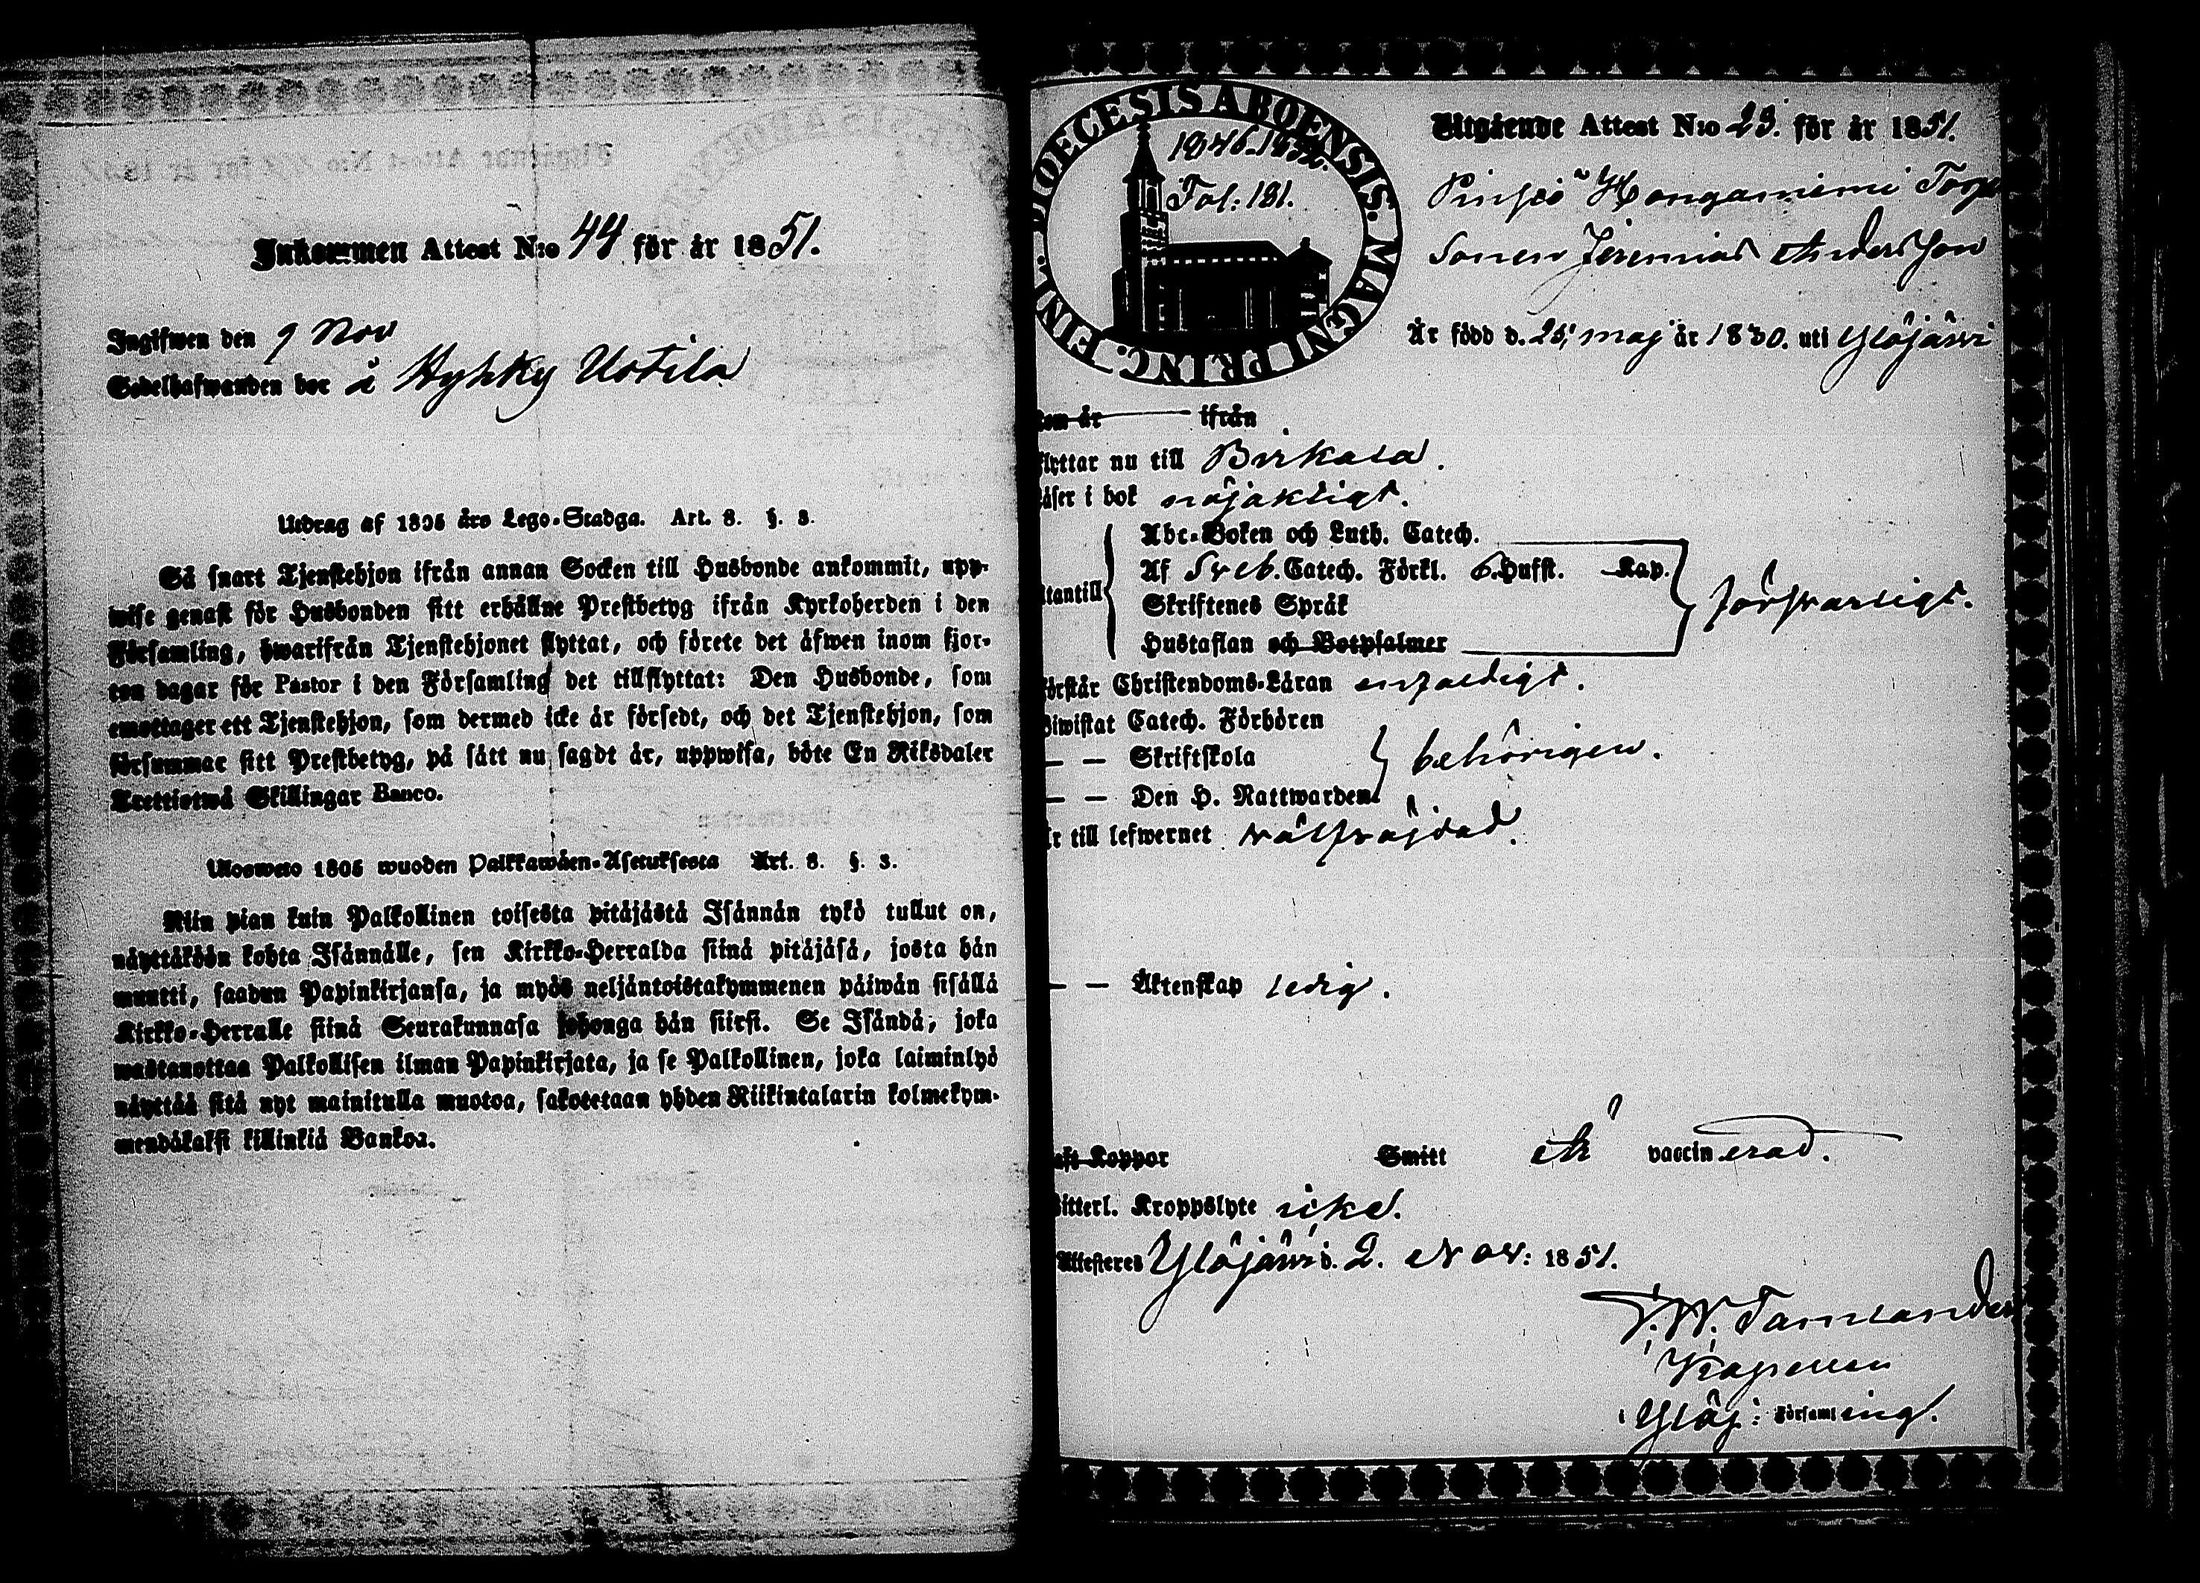 Inkommen Attest N:o 44 för år 1851.
Ingifwen den 9 Nov
Sedelhafwanden bor å Hyhky Uotila
Utdrag af 1805 års Lego-Stadga. Art. 8. §. 3.
Så snart Tjenstehjon ifrån annan Socken till Husbonde ankommit, upp-
wise genast för Husbonden sitt erhållne Prestbetyg ifrån Kyrkoherden i den
Församling, hwarifrån Tjenstehjonet flyttat, och förete det äfwen inom fjor-
ton dagar för Pastor i den Församling det tillflyttat: Den Husbonde, som
emottager ett Tjenstehjon, som dermed icke är försedt, och det Tjenstehjon, som
försummar sitt Prestbetyg, på sätt nu sagdt är, uppwisa, böte En Riksdaler
Trettiotwå Skillingar Banco.
Ulosweto 1805 wuoden Palkkawäen-Asetuksesta Art. 8. §. 3.
Niin pian kuin Palkollinen toisesta pitäjästä Isännän tykö tullut on,
näyttäköön kohta Isännälle, sen Kirkko-Herralda siinä pitäjäsä, josta hän
muutti, saadun Papinkirjansa, ja myös neljäntoistakymmenen päiwän sisällä
Kirkko-Herralle siinä Seurakunnasa johonga hän siirsi. Se Isändä, joka
wastanottaa Palkollisen ilman Papinkirjata, ja se Palkollinen, joka laiminlyö
näyttää sitä nyt mainitulla muotoa, sakotetaan yhden Riikintalarin kolmekym-
mendäkaksi killinkiä Bankoa.
DIOECESIS ABOENSIS. MAGNI PRINC. FINL.
1846-1852.
Fol: 181.
Utgående Attest N:o 23. för år 1851.
Pinsiö Honganiemi Torp
Sonen Jeremias Andersson
Är född d. 25. maj år 1830. uti Ylöjärvi
kom år ifrån
flyttar nu till Birkala.
läser i bok nöjaktigt.
Abc-Boken och Luth. Catech.
Af Sveb. Catech. Förkl. 6. Hufst. Kap.
utantill Skriftenes Språk försvarligt.
Hustaflan och Botpsalmer
förstår Christendoms-Läran enfaldigt.
Biwistat Catech. Förhören
— — Skriftskola behörigen.
— — Den H. Nattwarden
är till lefwernet välfräjdad.
— — Äktenskap ledig.
haft Koppor Smitt är vaccinerad.
Witterl. Kroppslyte icke.
Attesteres Ylöjärvi d. 2. Nov: 1851.
Kapellan
i Ylöj: Församling.